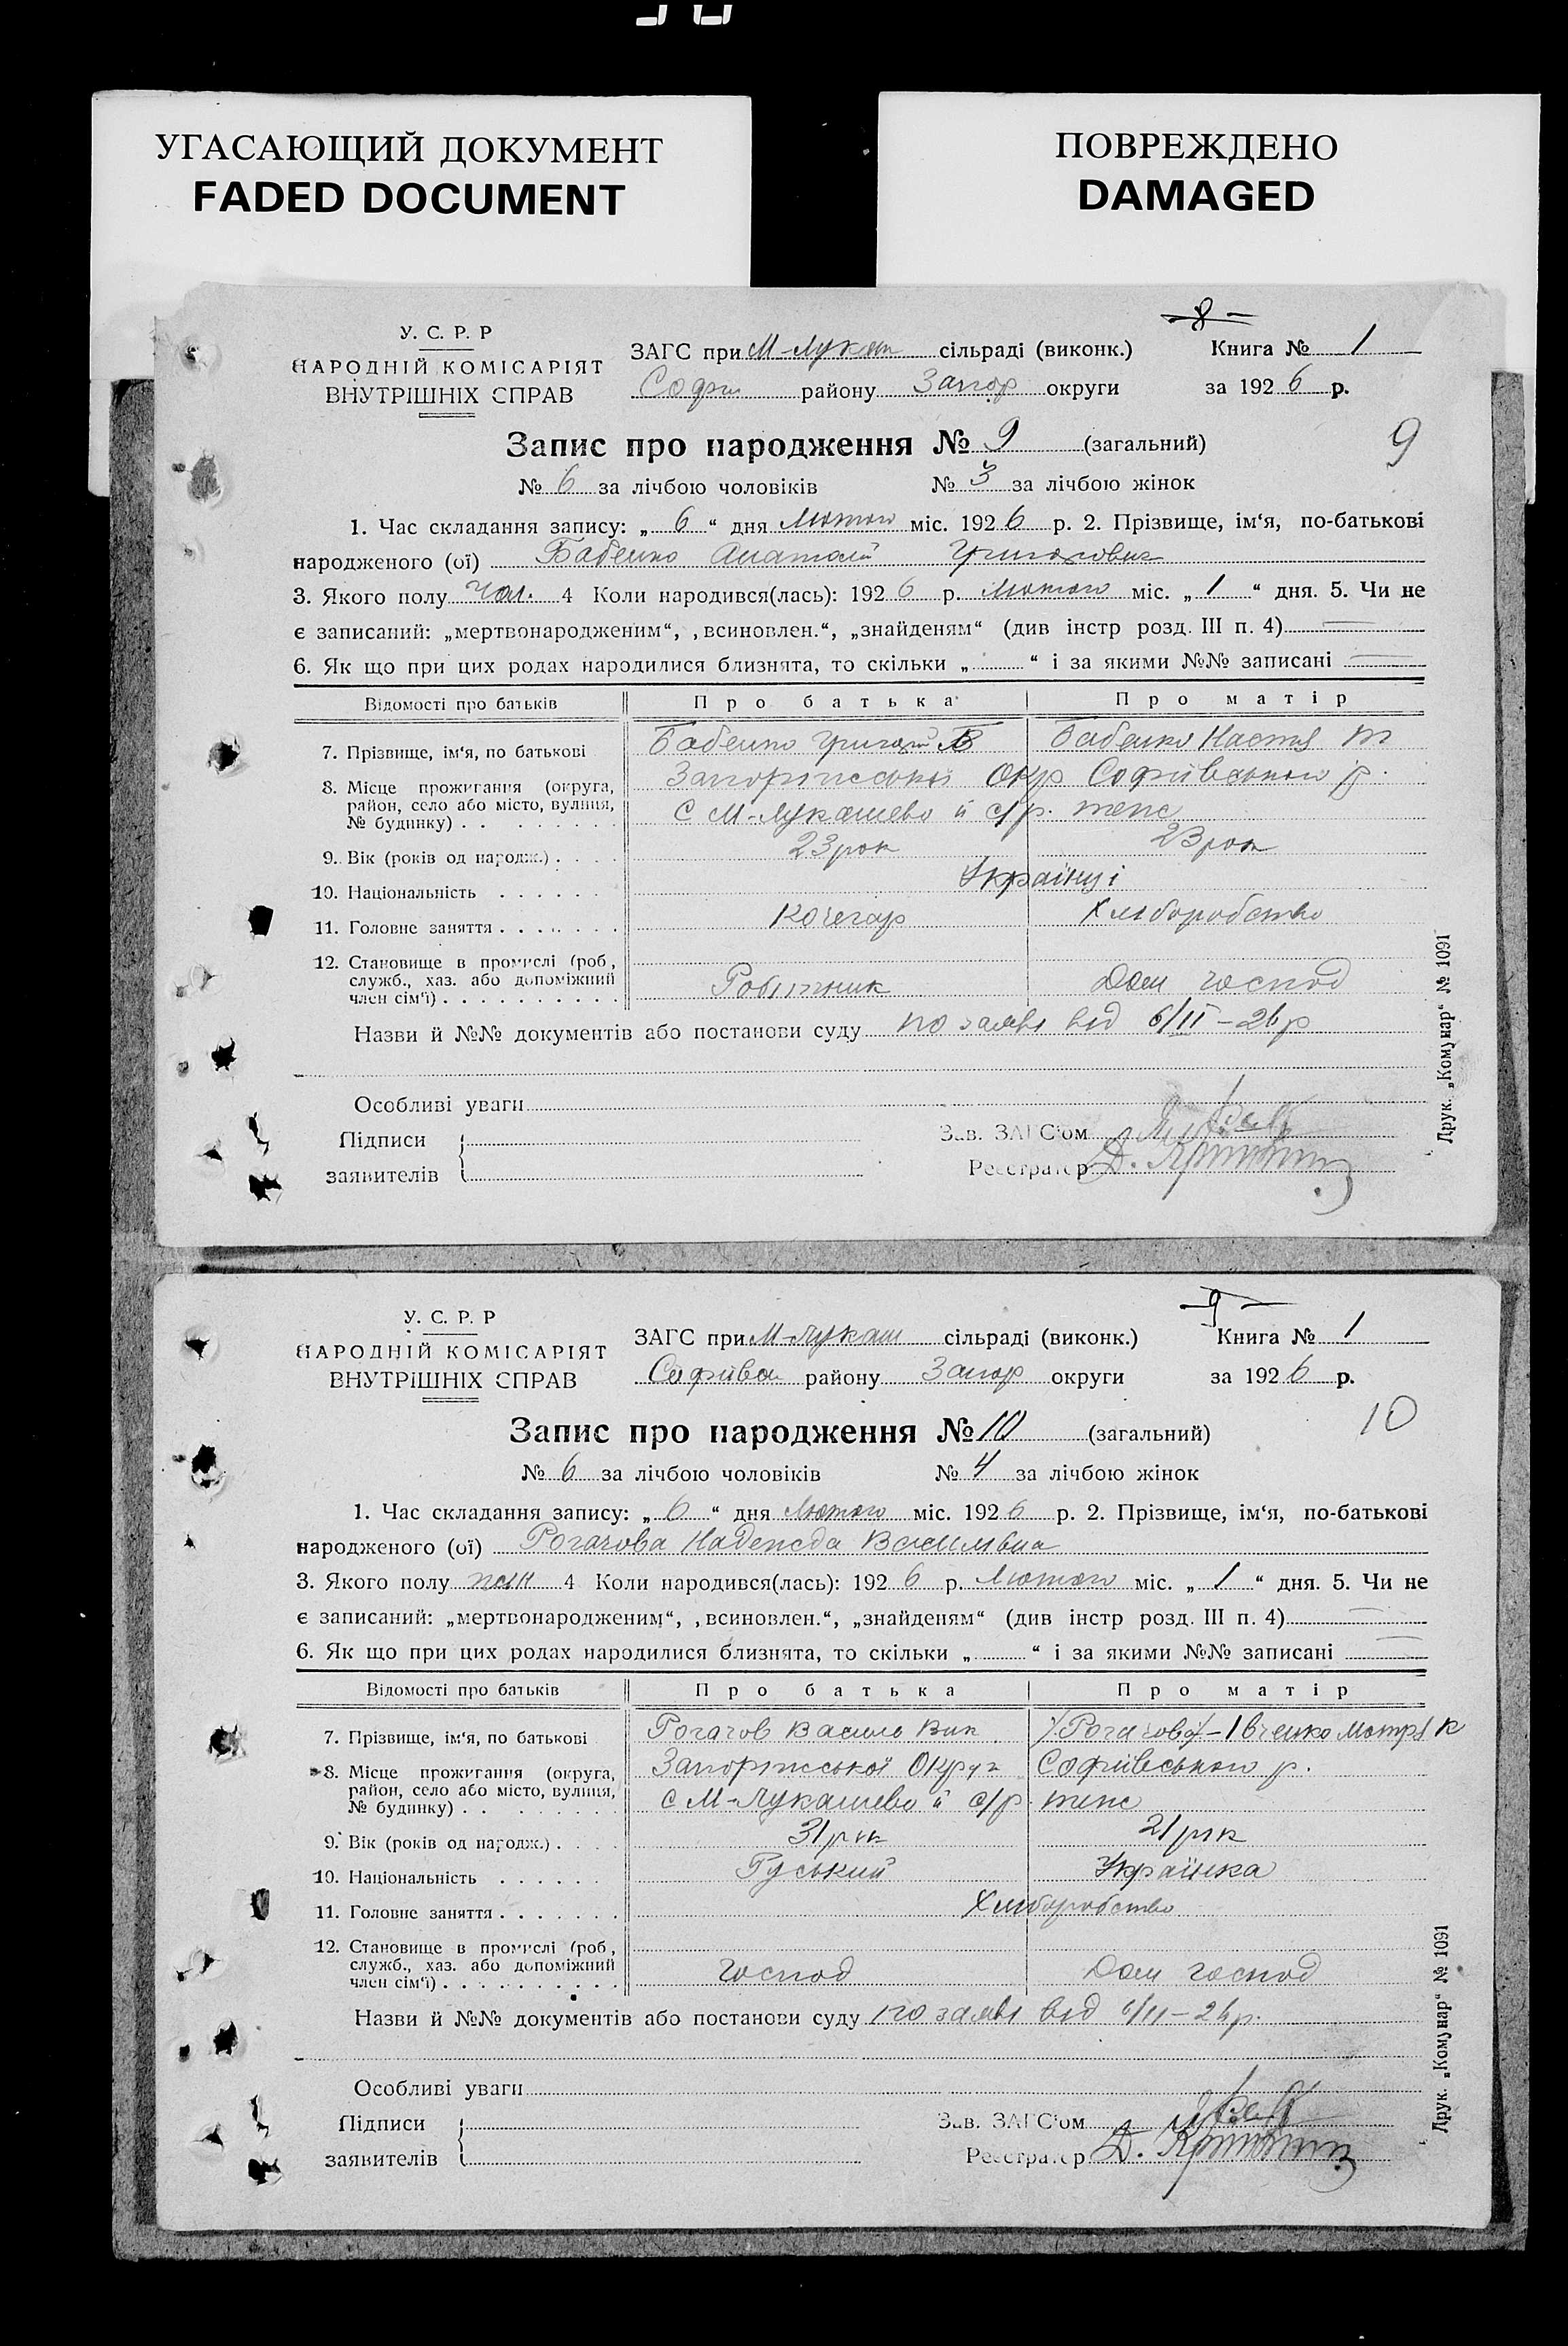 УГАСАЮЩИЙ ДОКУМЕНТ
FADED DOCUMENT
ПОВРЕЖДЕНО
DAMAGED
У. С. Р. Р
НАРОДНІЙ КОМІСАРІЯТ
ВНУТРІШНІХ СПРАВ
8
ЗАГС при М-Лукаш сільраді (виконк.) Книга № 1
Софи району Запор округи за 1926 р.
Запис про народження № 9 (загальний)
9
№ 6 за лічбою чоловіків № 3 за лічбою жінок
1. Час складання запису: „ 6 “ дня Лютого міс. 1926 р. 2. Прізвище, ім‘я, по-батькові
народженого (ої) Бабенко Анатолій Григорович
3. Якого полу чол. 4 Коли народився(лась): 1926 р. Лютого міс. „ 1 “ дня. 5. Чи не
є записаний: „мертвонародженим“, „всиновлен.“, „знайденям“ (див інстр розд. III п. 4)
6. Як що при цих родах народилися близнята, то скільки „ “ і за якими №№ записані
Відомості про батьків Про батька Про матір
7. Прізвище, ім‘я, по батькові Бабенко Григорій В Бабенко Настя Т
8. Місце прожигання (округа, район, село або місто, вулиця, № будинку) . . Запоріжської Окр Софиївського р.
С М-Лукашево й с/р. теж
9. Вік (років од народж.) . . . . 23 рок 23 рок
10. Національність . . . . . . Українці
11. Головне заняття . . . . . . . Кочегар Хліборобство
12. Становище в промислі (роб, служб., хаз. або допоміжний член сім‘ї) . . . . . . . . . . Робітник Дом господ
Назви й №№ документів або постанови суду по заяві від 6/II-26р
Особливі уваги
Підписи
заявителів
Зав. ЗАГС‘ом
Реєстратор Д.
Друк. „Комунар“ № 1091
У. С. Р. Р
НАРОДНІЙ КОМІСАРІЯТ
ВНУТРІШНІХ СПРАВ
9
ЗАГС при М-Лукаш сільраді (виконк.) Книга № 1
Софиївск району Запор округи за 1926 р.
Запис про народження № 10 (загальний)
10
№ 6 за лічбою чоловіків № 4 за лічбою жінок
1. Час складання запису: „ 6 “ дня Лютого міс. 1926 р. 2. Прізвище, ім‘я, по-батькові
народженого (ої) Рогачова Надежда Васильвна
3. Якого полу жін 4 Коли народився(лась): 1926 р. Лютого міс. „ 1 “ дня. 5. Чи не
є записаний: „мертвонародженим“, „всиновлен.“, „знайденям“ (див інстр розд. III п. 4)
6. Як що при цих родах народилися близнята, то скільки „ “ і за якими №№ записані
Відомості про батьків Про батька Про матір
7. Прізвище, ім‘я, по батькові Рогачов Василь Вик (Рогачова)-Івченко Мотря К
8. Місце прожигання (округа, район, село або місто, вулиця, № будинку) . . Запоріжської Округи Софиївського р.
с М-Лукашево й с/р. теж
9. Вік (років од народж.) . . . . 31 рік 21 рік
10. Національність . . . . . . Руський Українка
11. Головне заняття . . . . . . . Хліборобство
12. Становище в промислі (роб, служб., хаз. або допоміжний член сім‘ї) . . . . . . . . . . господ Дом господ
Назви й №№ документів або постанови суду по заяві від 6/II-26р.
Особливі уваги
Підписи
заявителів
Зав. ЗАГС‘ом
Реєстратор Д.
Друк. „Комунар“ № 1091